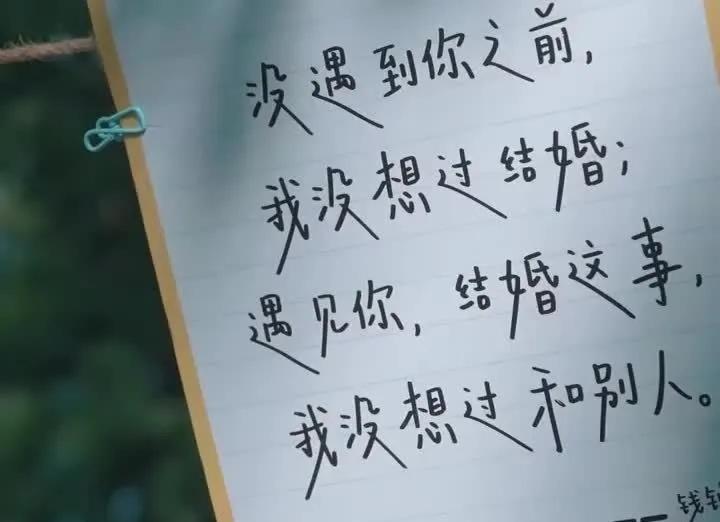 没遇到你之前,
我没想过结婚;
遇见你,结婚这事,
我没想过和别人。
——钱钟